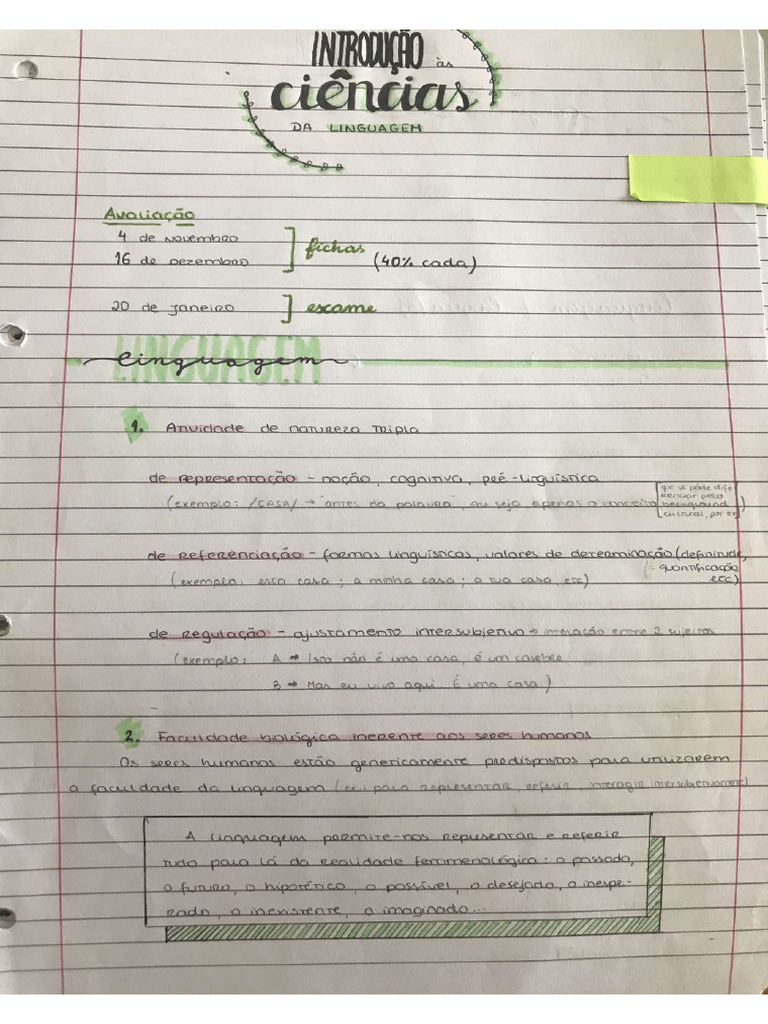 INTRODUÇÃO às
ciências
DA LINGUAGEM
Avaliação
4 de novembro
16 de dezembro
fichas
(40% cada)
20 de janeiro
exame
LINGUAGEM
linguagem
1. Atividade de natureza tripla
de representação - noção, cognitiva, pré-linguística
(exemplo: /CASA/ → "antes da palavra", ou seja apenas o conceito
que se pode dife
renciar pelo
background
cultural, por ex)
de referenciação - formas linguísticas, valores de determinação (definitude,
quantificação
etc)
(exemplo: esta casa; a minha casa; a tua casa, etc)
de regulação - ajustamento intersubjetivo → interação entre 2 sujeitos
(exemplo: A → Isto não é uma casa, é um casebre
B → Mas eu vivo aqui. É uma casa)
2. Faculdade biológica inerente aos seres humanos
Os seres humanos estão genericamente predispostos para utilizarem
a faculdade da linguagem (ex: para representar, referir, interagir intersubjetivamente)
A linguagem permite-nos representar e referir
tudo para lá da realidade fenomenológica: o passado,
o futuro, o hipotético, o possível, o desejado, o inespe-
rado, o inexistente, o imaginado...